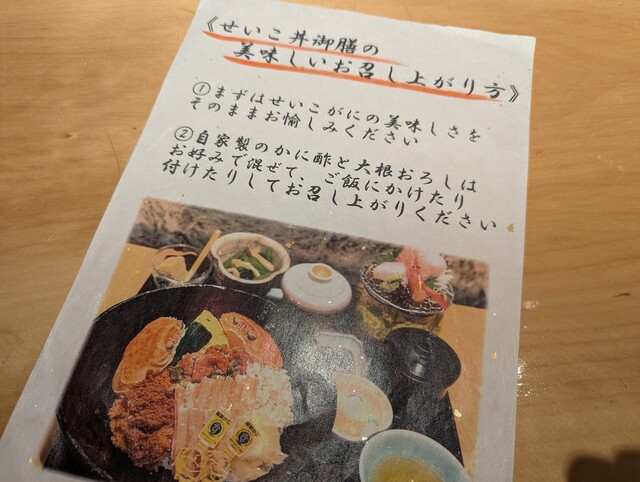 《せいこ丼御膳の
美味しいお召し上がり方》
①まずはせいこがにの美味しさを
そのままお愉しみください
②自家製のかに酢と大根おろしは
お好みで混ぜて、ご飯にかけたり
付けたりしてお召し上がりください